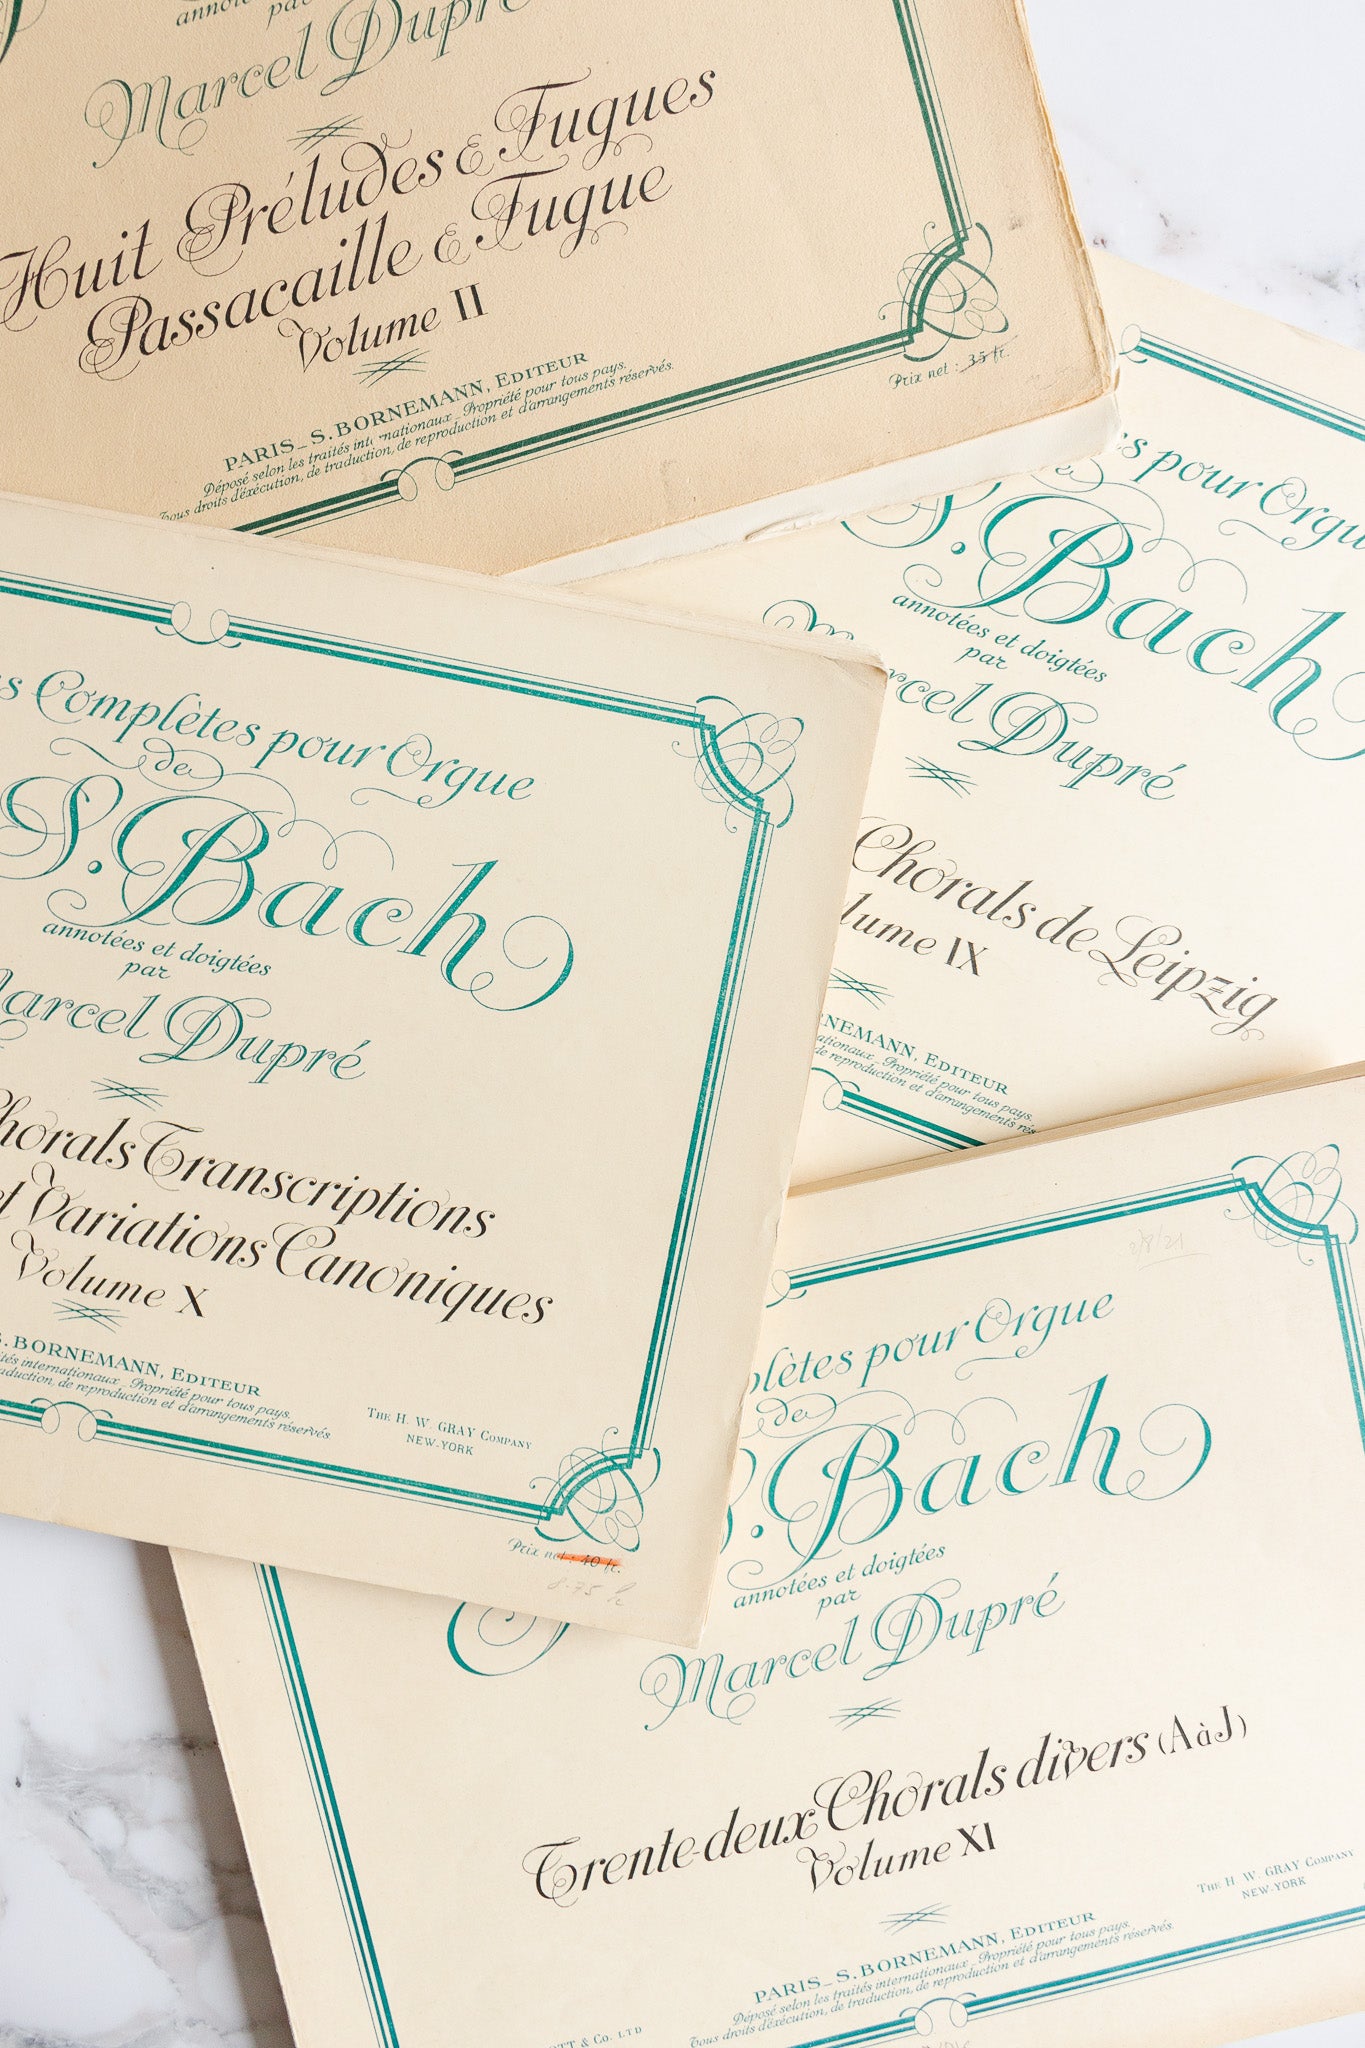 par
Marcel Dupré
Huit Préludes & Fugues
Passacaille & Fugue
Volume II
PARIS_S. BORNEMANN, EDITEUR
Déposé selon les traités internationaux_Propriété pour tous pays.
Tous droits d'éxécution, de traduction, de reproduction et d'arrangements réservés.
Prix net : 35 fr.
pour Orgue
de
S. Bach
annotées et doigtées
par
Marcel Dupré
Chorals de Leipzig
Volume IX
BORNEMANN, EDITEUR
Propriété pour tous pays.
de reproduction et d'arrangements
Complètes pour Orgue
de
S. Bach
annotées et doigtées
par
Marcel Dupré
Chorals Transcriptions
et Variations Canoniques
Volume X
S. BORNEMANN, EDITEUR
internationaux_Propriété pour tous pays.
de reproduction et d'arrangements réservés.
THE H. W. GRAY COMPANY
NEW-YORK
Prix net : 40 fr.
8.75
2/8/21
pour Orgue
de
S. Bach
annotées et doigtées
par
Marcel Dupré
Trente-deux Chorals divers (A à J)
Volume XI
THE H. W. GRAY COMPANY
NEW-YORK
PARIS_S. BORNEMANN, EDITEUR
Déposé selon les traités internationaux_Propriété pour tous pays.
Tous droits d'éxécution, de traduction, de reproduction et d'arrangements réservés.
& Co. LTD